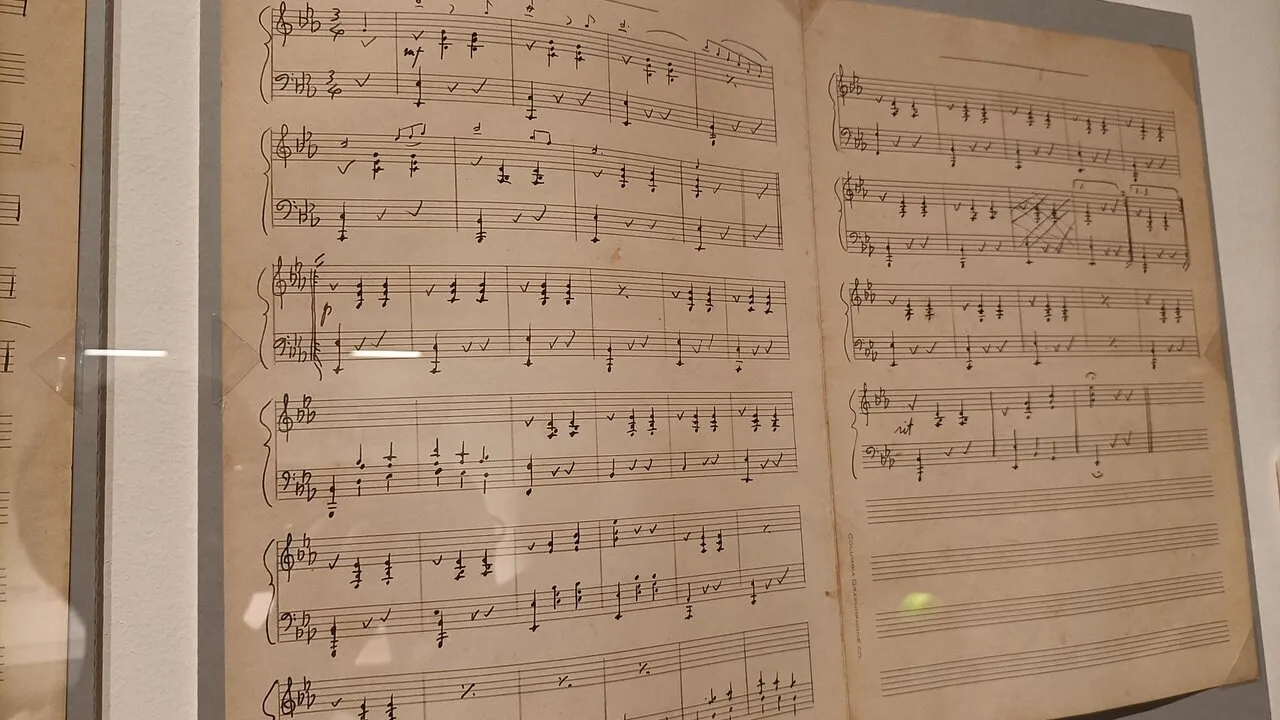 3
4
mf
p
rit
COLUMBIA GRAPHOPHONE CO.